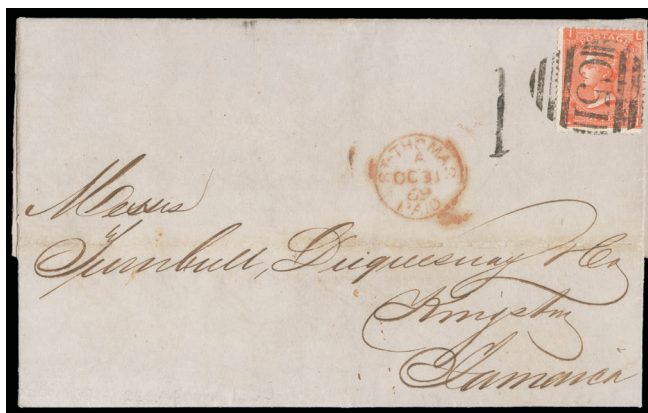 I L
POSTAGE
C51
1
ST-THOMAS
A
OC 31
69
PAID
Messrs
Turnbull, Duquesnay & Co
Kingston
Jamaica